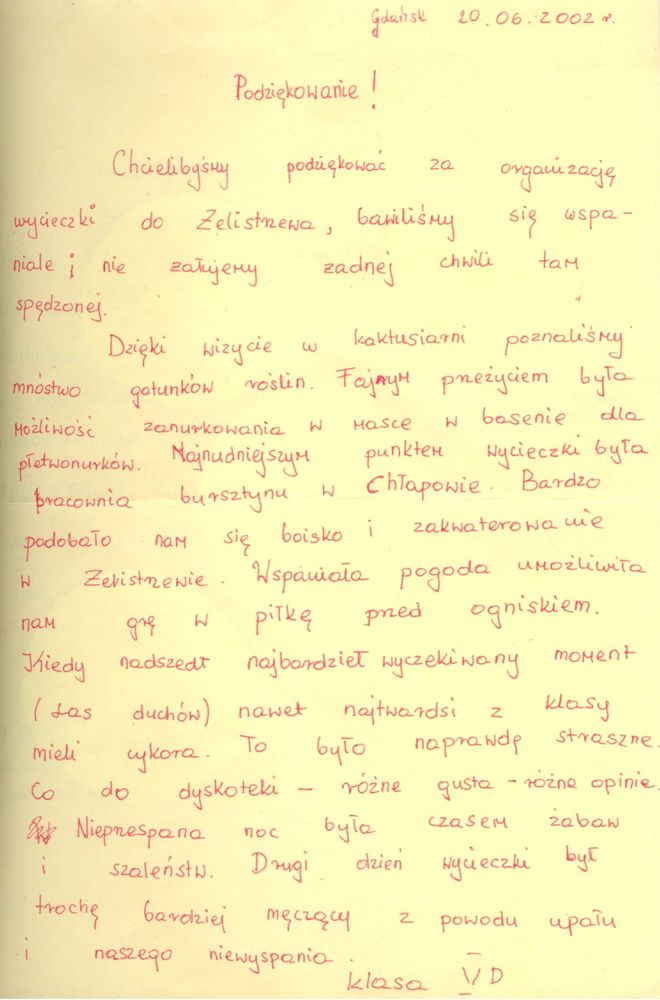 Gdańsk 20.06.2002 r.
Podziękowanie!
Chcielibyśmy podziękować za organizację
wycieczki do Żelistrzewa, bawiliśmy się wspa-
niale i nie żałujemy żadnej chwili tam
spędzonej.
Dzięki wizycie w kaktusiarni poznaliśmy
mnóstwo gatunków roślin. Fajnym przeżyciem była
możliwość zanurkowania w masce w basenie dla
płetwonurków. Najnudniejszym punktem wycieczki była
pracownia bursztynu w Chłapowie. Bardzo
podobało nam się boisko i zakwaterowanie
w Żelistrzewie. Wspaniała pogoda umożliwiła
nam grę w piłkę przed ogniskiem.
Kiedy nadszedł najbardzieł wyczekiwany moment
(Las duchów) nawet najtwardsi z klasy
mieli cykora. To było naprawdę straszne.
Co do dyskoteki – różne gusta – różne opinie.
Nieprzespana noc była czasem zabaw
i szaleństw. Drugi dzień wycieczki był
trochę bardziej męczący z powodu upału
i naszego niewyspania.
klasa V D